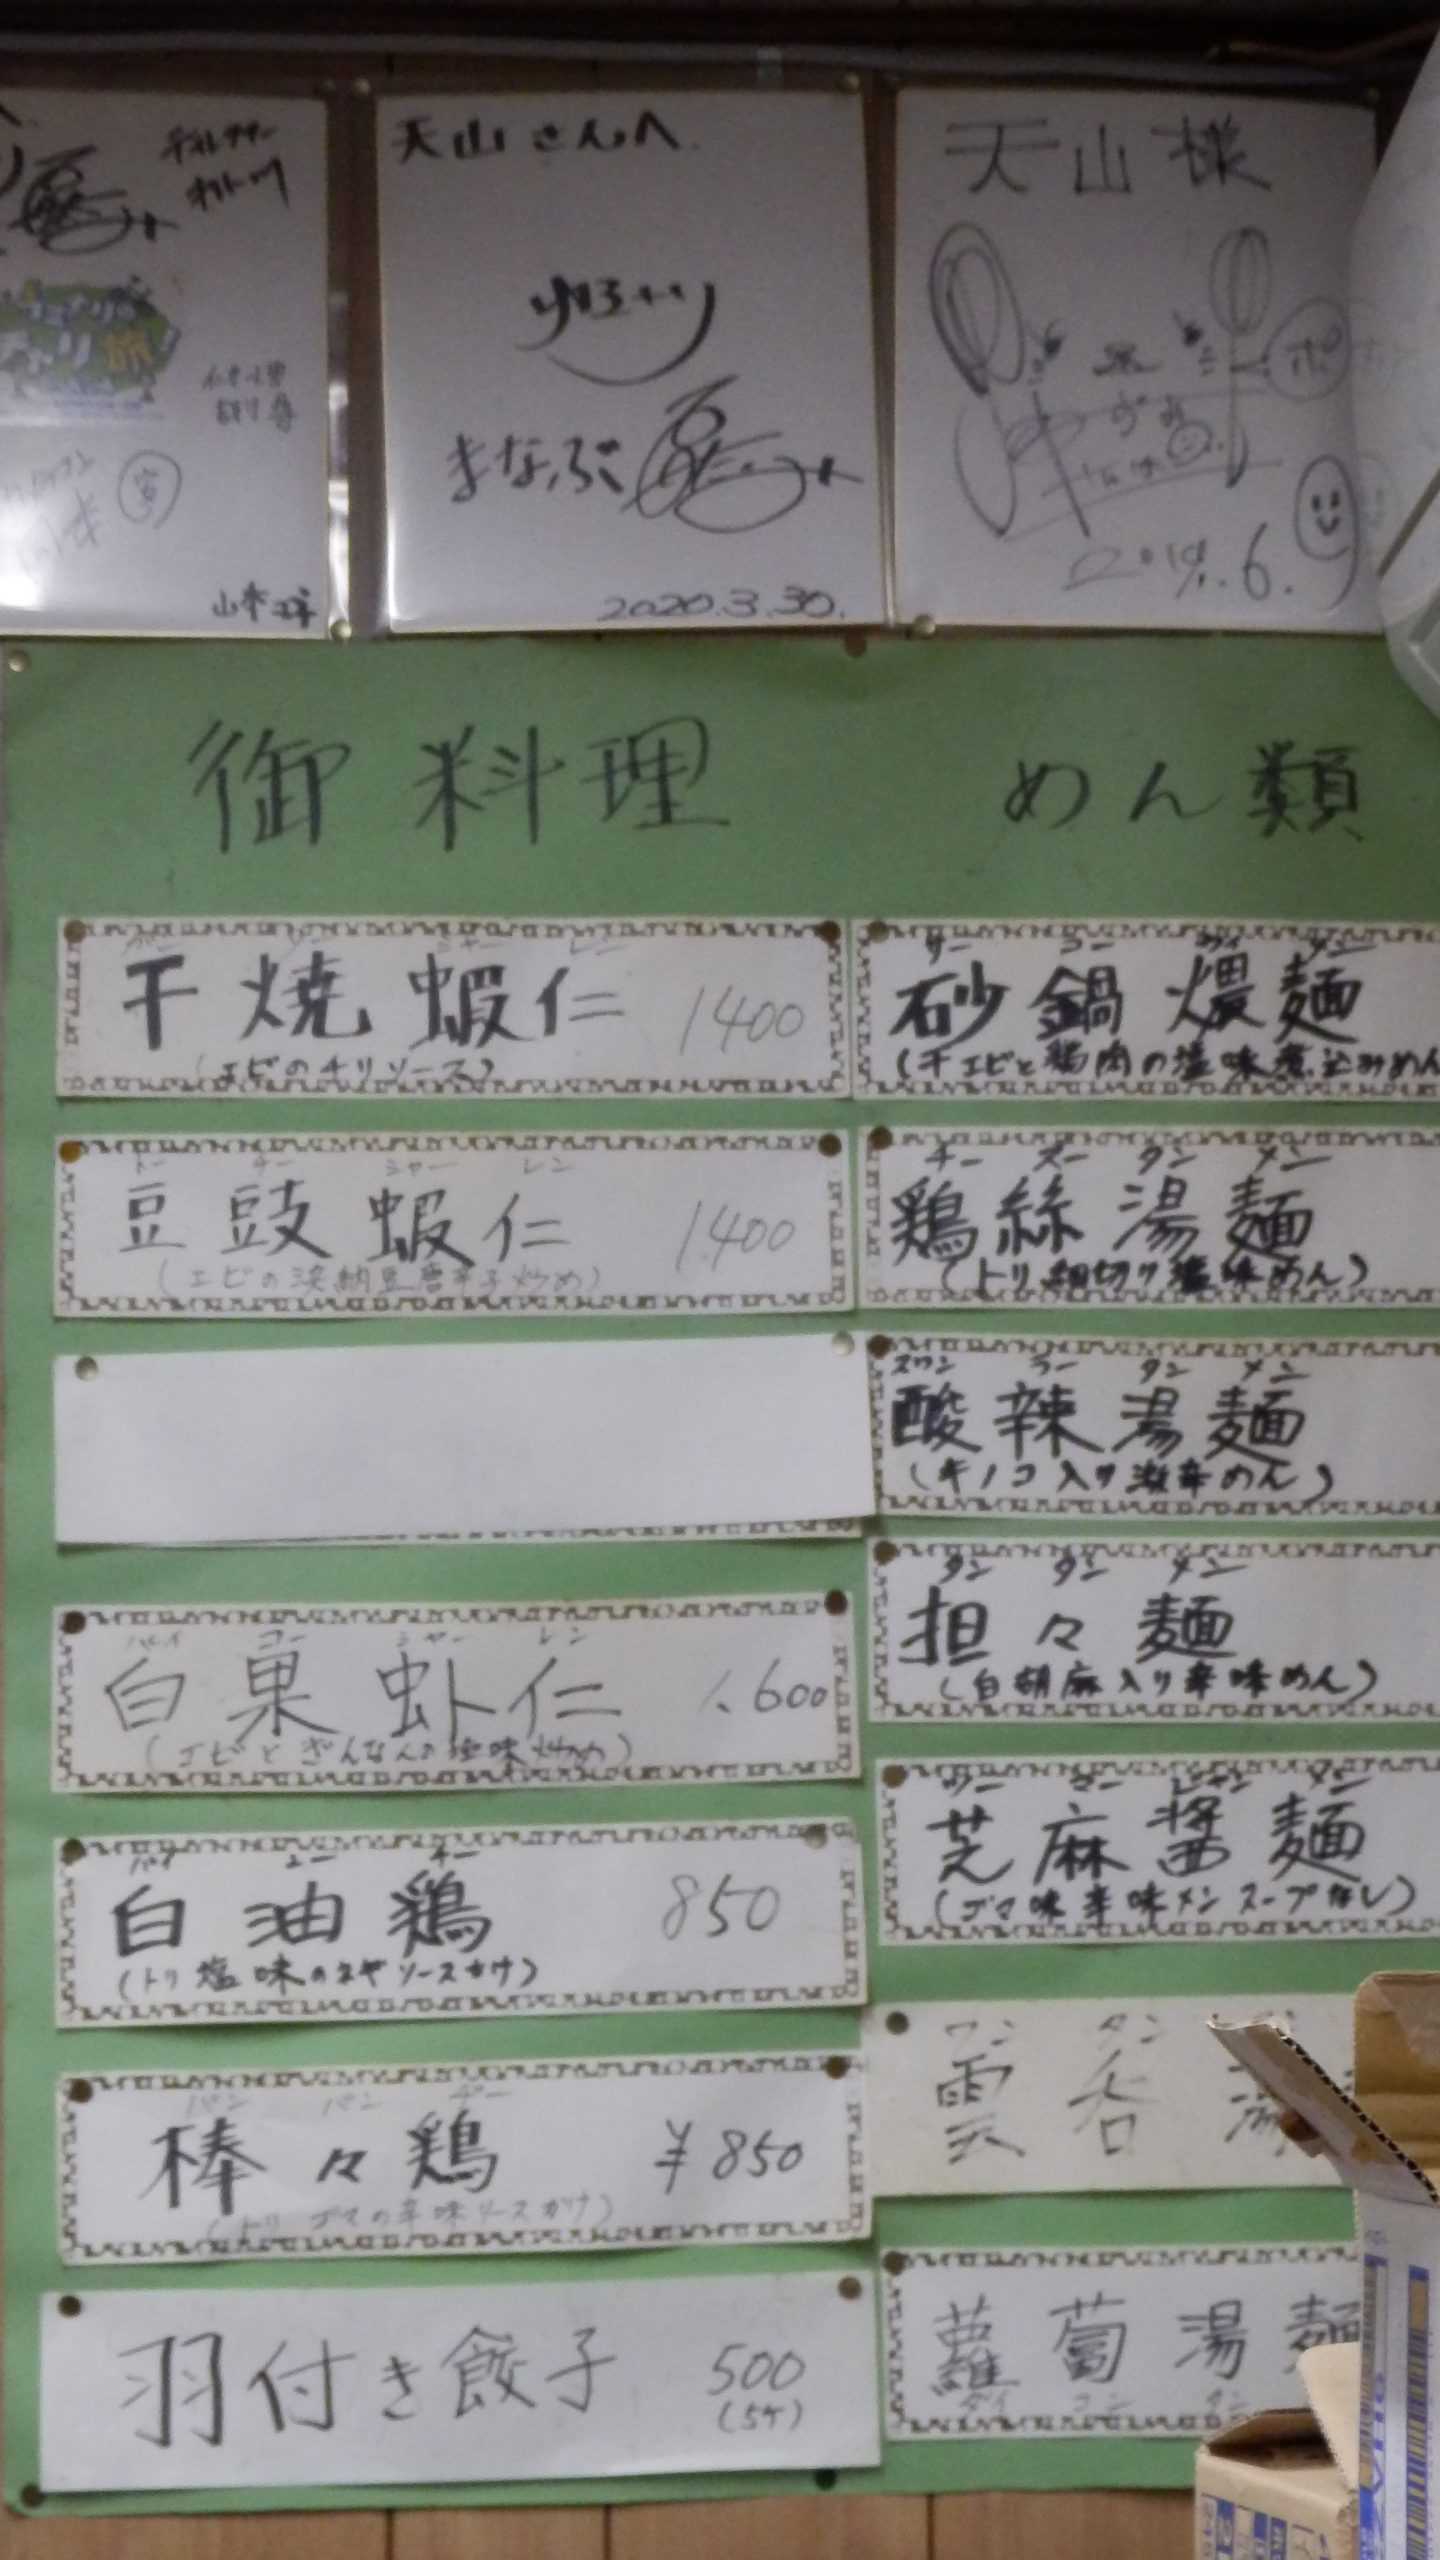 天山さんへ
まなぶ
2020.3.30.
天山様
2014.6.
チャリ旅!
御料理
ガン ソー シャー レン
干焼蝦仁 1400
(エビのチリソース)
トー チー シャー レン
豆豉蝦仁 1400
(エビの浜納豆唐辛子炒め)
バイ コー シャー レン
白菓虾仁 1.600
(エビとぎんなんの塩味炒め)
バイ ユー チー
白油鶏 850
(トリ塩味のネギソースかけ)
バン バン ヂー
棒々鶏 ¥850
(トリ ゴマの辛味ソースかけ)
羽付き餃子 500
(5ケ)
めん類
サー コー ウイ メン
砂鍋煨麺
(干エビと鶏肉の塩味煮込みめん
チー スー タン メン
鶏絲湯麺
(トリ細切り塩味めん)
スワン ラー タン メン
酸辣湯麺
(キノコ入り激辛めん)
タン タン メン
担々麺
(白胡麻入り辛味めん)
マー ジャン メン
芝麻醤麺
(ゴマ味辛味メンスープ無し)
ワン タン
雲呑湯
蘿蔔湯麺
ダイ コン タン